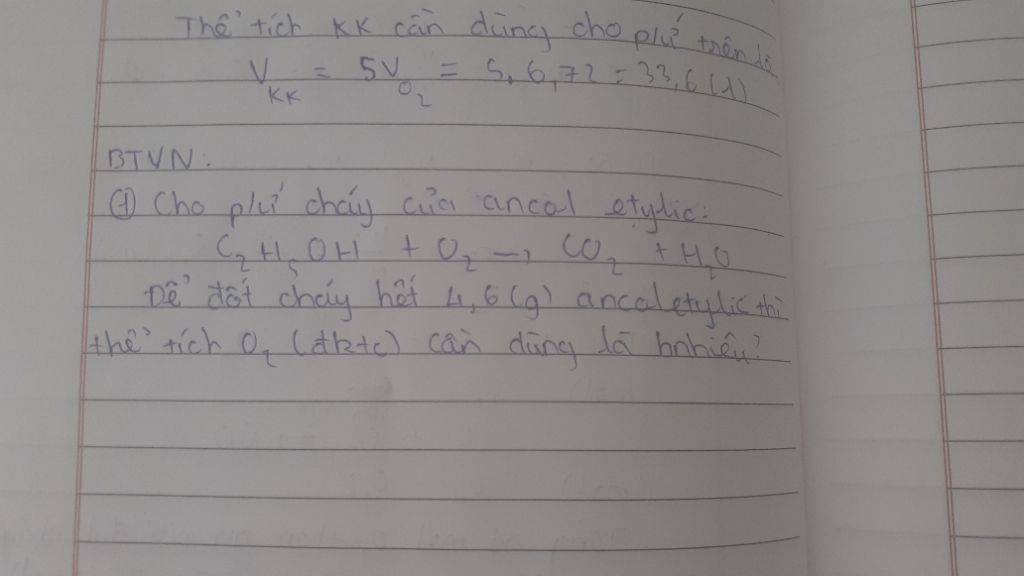 Thể tích KK cần dùng cho pứ trên là
V_KK = 5V_O₂ = 5.6,72 = 33,6 (l)
BTVN:
① Cho pứ cháy của ancol etylic:
C₂H₅OH + O₂ → CO₂ + H₂O
Để đốt cháy hết 4,6 (g) ancol etylic thì
thể tích O₂ (đktc) cần dùng là bnhiêu?